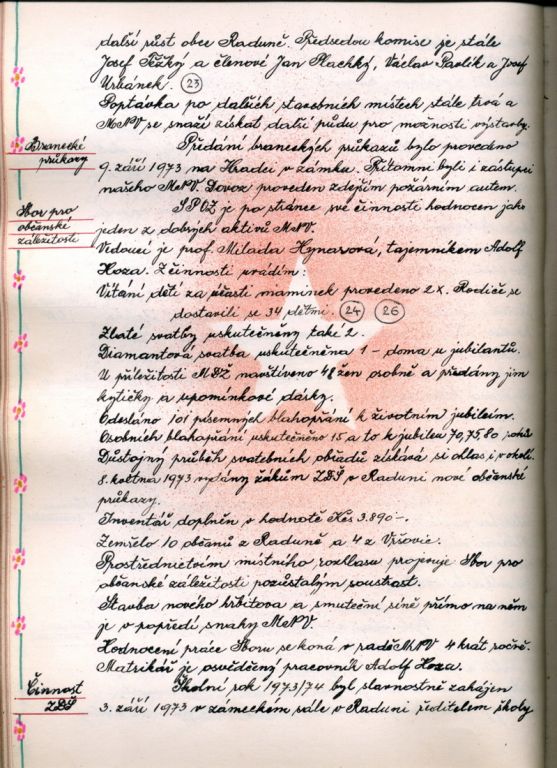 další růst obce Raduně. Předsedou komise je stále
Josef Těžký a členové Jan Plachký, Václav Pavlík a Josef
Urbánek. (23)
Poptávka po dalších stavebních místech stále trvá a
MNV se snaží získat další půdu pro možnosti výstavby.
Branecké
průkazy
Předání braneckých průkazů bylo provedeno
9. září 1973 na Hradci v zámku. Přítomni byli i zástupci
našeho MNV. Dovoz proveden zdejším požárním autem.
Sbor pro
občanské
záležitosti
SPOZ je po stránce své činnosti hodnocen jako
jeden z dobrých aktivů MNV.
Vedoucí je prof. Milada Hynarová, tajemníkem Adolf
Hoza. Z činnosti uvádím:
Vítání dětí za účasti maminek provedeno 2x. Rodiče se
dostavili se 34 dětmi. (24) (26)
Zlaté svatby uskutečněny také 2.
Diamantová svatba uskutečněna 1 - doma u jubilantů.
U příležitosti MDŽ navštíveno 48 žen osobně a předány jim
kytičky a upomínkové dárky.
Odesláno 101 písemných blahopřání k životním jubileím.
Osobních blahopřání uskutečněno 15 a to k jubileu 70,75 80 roků
Důstojný průběh svatebních obřadů získává si ohlas i v okolí.
8. května 1973 vydány žákům ZDŠ v Raduni nové občanské
průkazy.
Inventář doplněn v hodnotě Kčs 3.890-.
Zemřelo 10 občanů z Raduně a 4 z Vršovic.
Prostřednictvím místního rozhlasu projevuje Sbor pro
občanské záležitosti pozůstalým soustrast.
Stavba nového hřbitova a smuteční síně přímo na něm
je v popředí snahy MNV.
Hodnocení práce Sboru se koná v radě MNV 4 krát ročně.
Matrikář je osvědčený pracovník Adolf Hoza.
Činnost
ZDŠ
Školní rok 1973/74 byl slavnostně zahájen
3. září 1973 v zámeckém sále v Raduni ředitelem školy